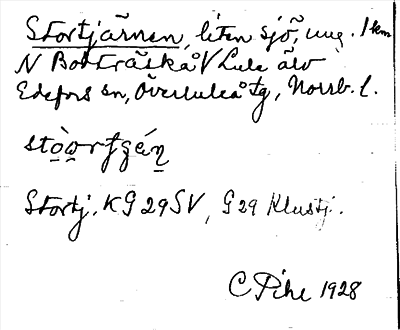 Stortjärnen, liten sjö, ung. 1 km
N Bodträskå V Lule älv
Edefors sn, Överluleå tg, Norrb. l.
Stortj. KG 29 SV, G 29 Klustj.
C Pihl 1928